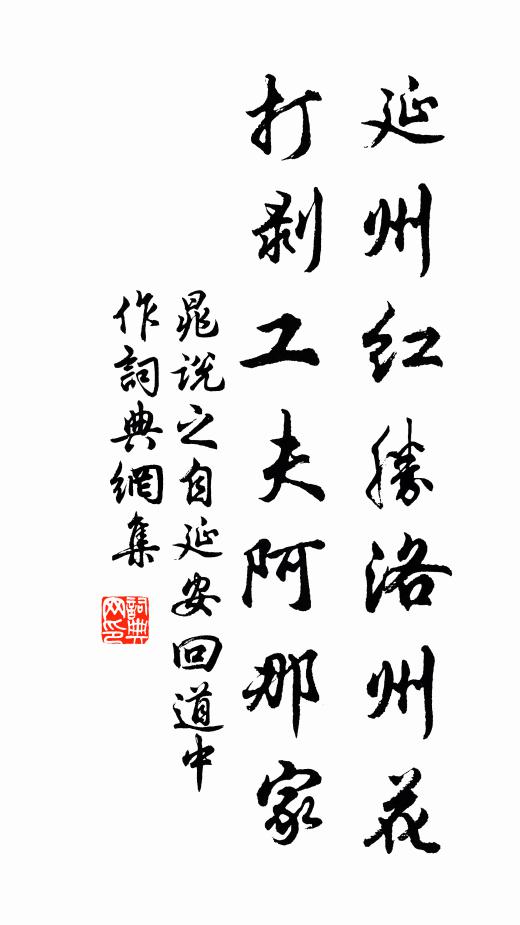 延州红勝洛州花
打剥工夫阿那家
晁说之自延安回道中
作詞典網集
詞典网印